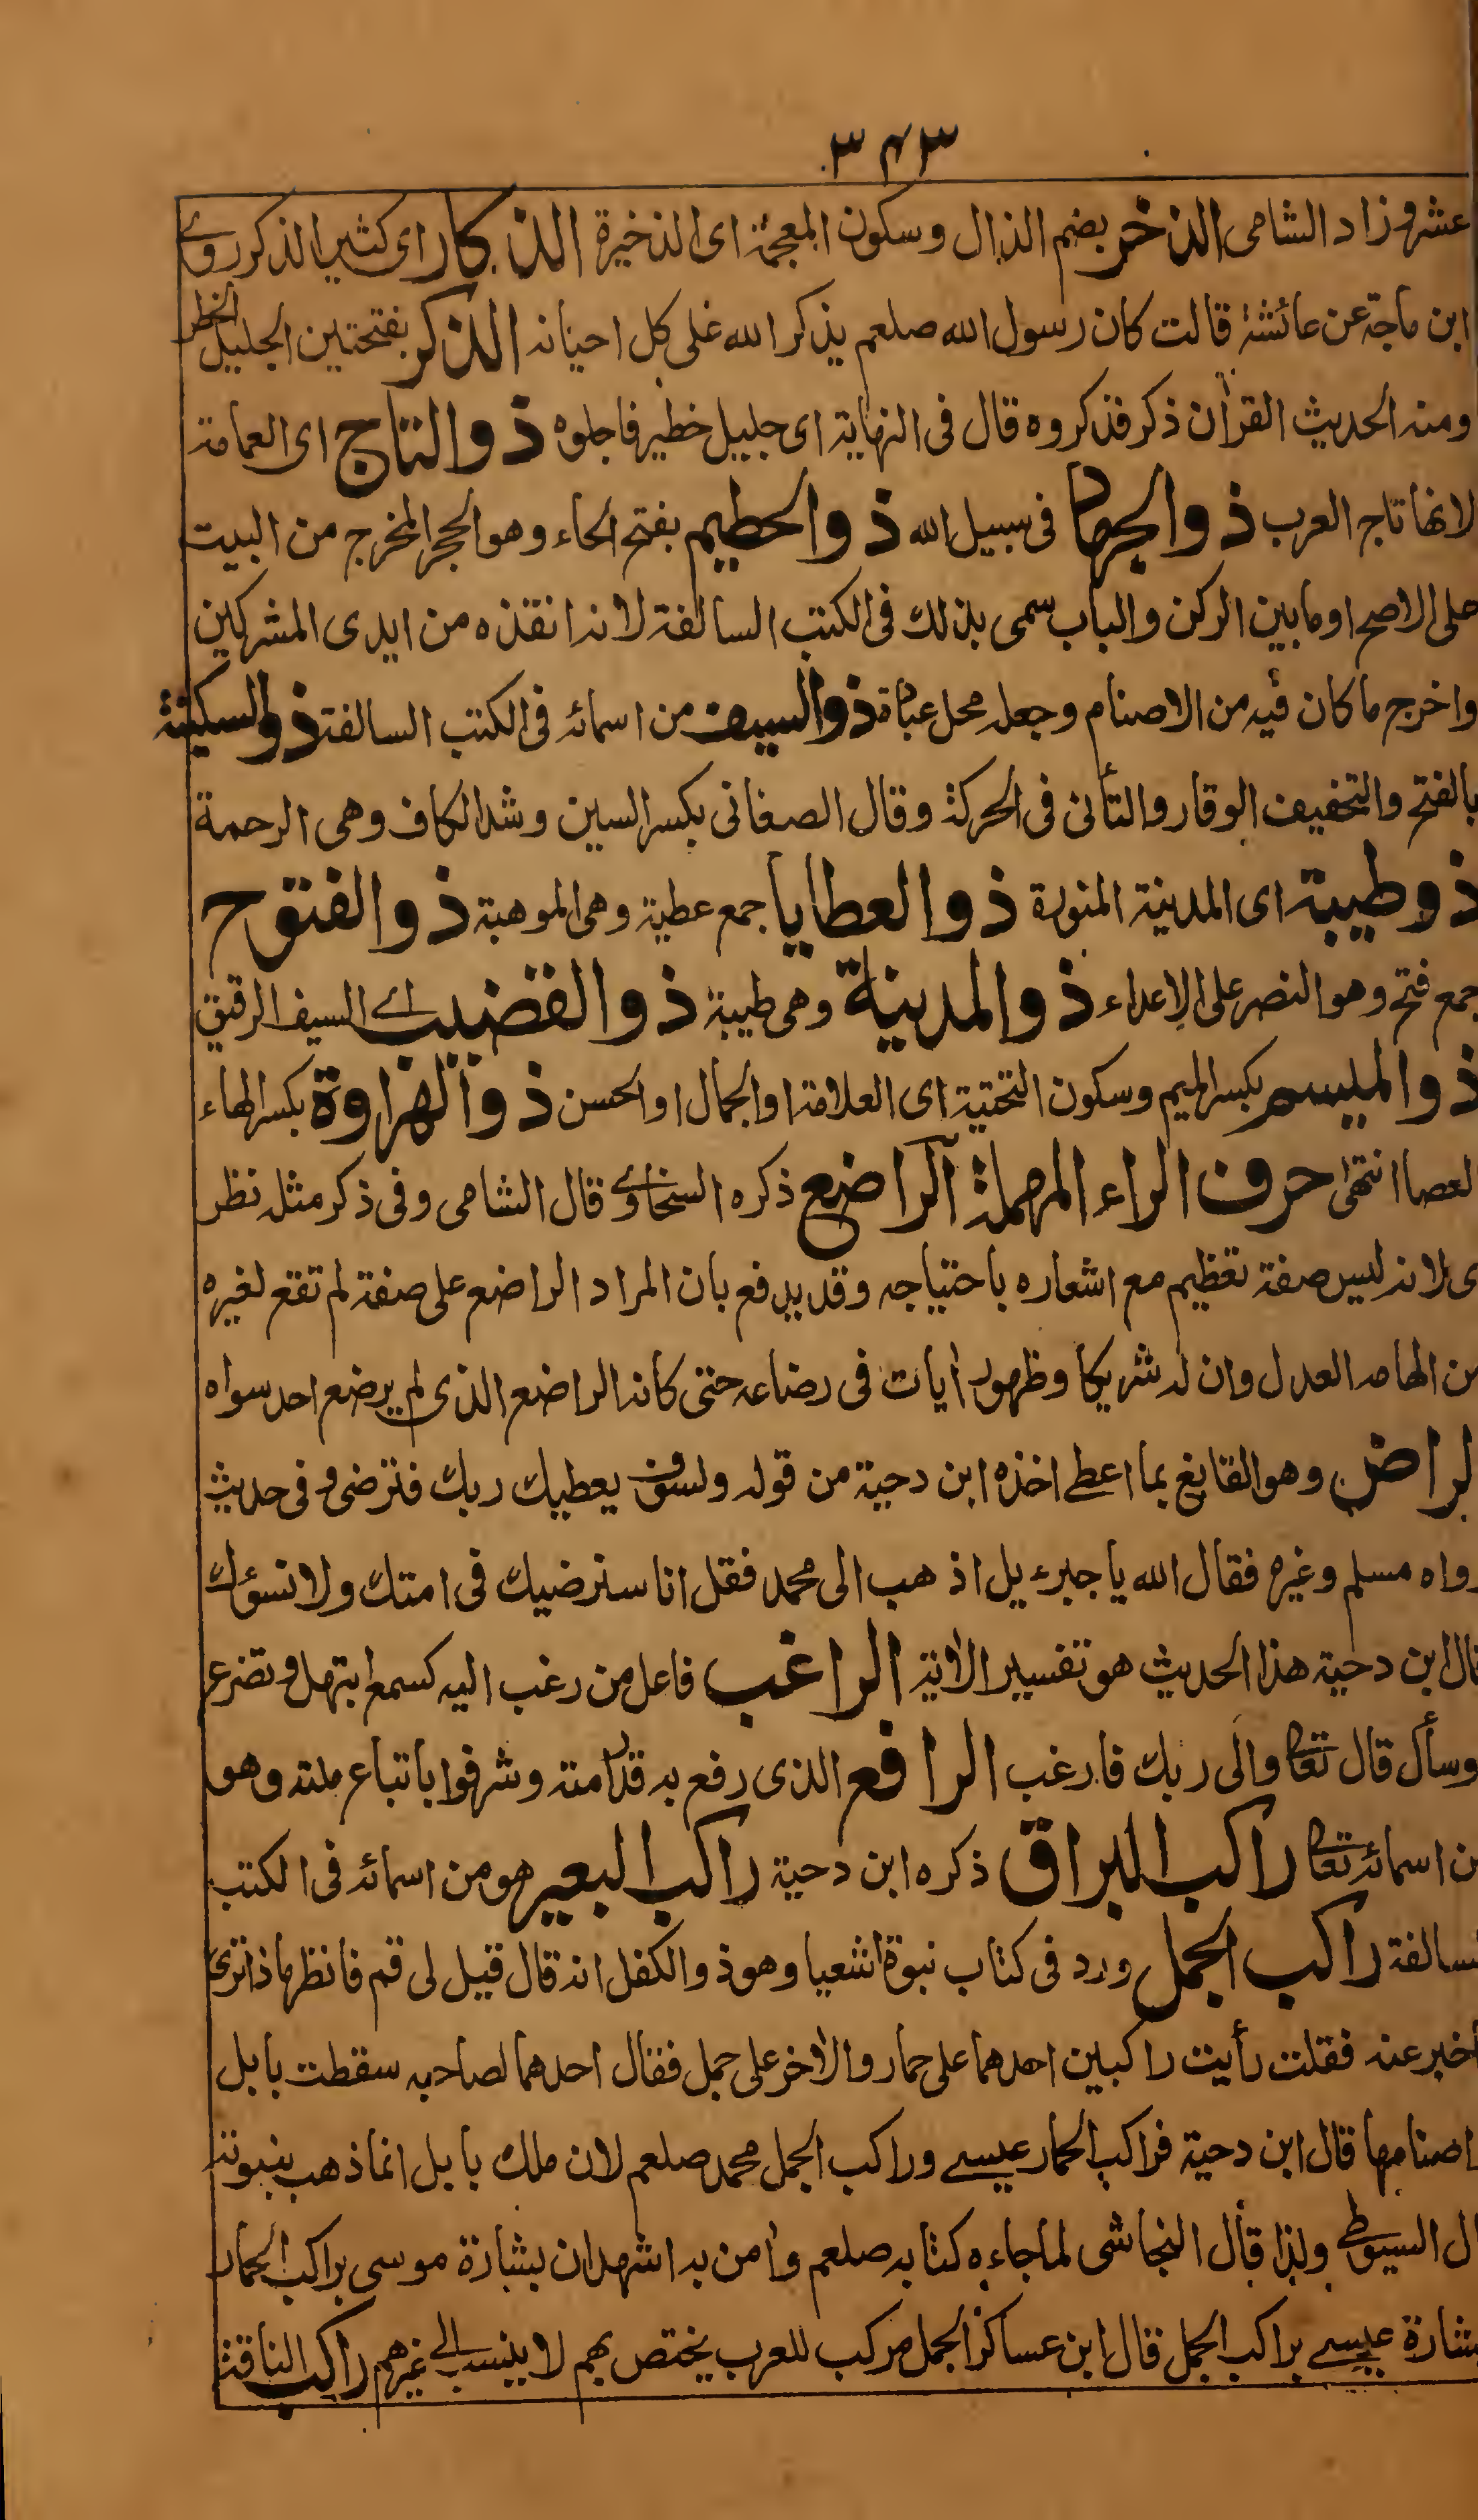 ٣٤٣
عشر وزاد الشامى الذخر بضم الذال وسكون المعجمة اى الذخيرة الذكار اى كثير الذكر روى
ابن ماجة عن عائشة قالت كان رسول الله صلعم يذكر الله على كل احيانه الذكر بفتحتين الجليل الخطر
ومنه الحديث القرأن ذكر فذكروه قال فى النهاية اى جليل خطير فاجلوه ذو التاج اى العمامة
لانها تاج العرب ذو الجهاد فى سبيل الله ذو الحطيم بفتح الحاء وهو الحجر المخرج من البيت
على الاصح او ما بين الركن والباب سمى بذلك فى الكتب السالفة لانه انقذه من ايدى المشركين
واخرج ما كان فيه من الاصنام وجعله محل عبادة ذو السيف من اسمائه فى الكتب السالفة ذو السكينة
بالفتح والتخفيف الوقار والتأنى فى الحركة وقال الصغانى بكسر السين وشد الكاف وهى الرحمة
ذو طيبة اى المدينة المنورة ذو العطايا جمع عطية وهى الموهبة ذو الفتوح
جمع فتح وهو النصر على الاعداء ذو المدينة وهى طيبة ذو القضيب اے السيف الرقيق
ذو الميسم بكسر الميم وسكون التحتية اى العلامة او الجمال او الحسن ذو الهراوة بكسر الهاء
لعصا انتهى حرف الراء المهملة الراضع ذكره السخاوے قال الشامى وفى ذكر مثله نظر
ى لانه ليس صفة تعظيم مع اشعاره باحتياجه وقد يدفع بان المراد الراضع على صفة لم تقع لغيره
من الهامه العدل وان له شريكا وظهور أيات فى رضاعه حتى كانه الراضع الذى لم يرضع احد سواه
لراض وهو القانع بما اعطے اخذه ابن دحية من قوله ولسوف يعطيك ربك فترضى وفى حديث
رواه مسلم وغيره فقال الله يا جبرءيل اذهب الى محمد فقل انا سنرضيك فى امتك ولا نسؤك
قال ابن دحية هذا الحديث هو تفسير الأية الراغب فاعل من رغب اليه كسمع ابتهل وتضرع
وسأل قال تعا والى ربك فارغب الرافع الذى رفع به قدر امته وشرفوا باتباع ملته وهو
من اسمائه تعا راكب البراق ذكره ابن دحية راكب البعير هو من اسمائه فى الكتب
لسالفة راكب الجمل ورد فى كتاب نبوة اشعيا وهو ذو الكفل انه قال قيل لى قم فانظر ماذا ترى
أخبر عنه فقلت رأيت راكبين احدهما على حمار والأخر على جمل فقال احدهما لصاحبه سقطت بابل
اصنامها قال ابن دحية فراكب الحمار عيسے وراكب الجمل محمد صلعم لان ملك بابل انما ذهب بنبوته
ال السيوطى ولذا قال النجاشى لما جاءه كتابه صلعم وأمن به اشهد ان بشارة موسى براكب الحمار
بشارة عيسے براكب الجمل قال ابن عساكر الجمل مركب للعرب يختص بهم لا ينسب الے غيرهم راكب الناقة